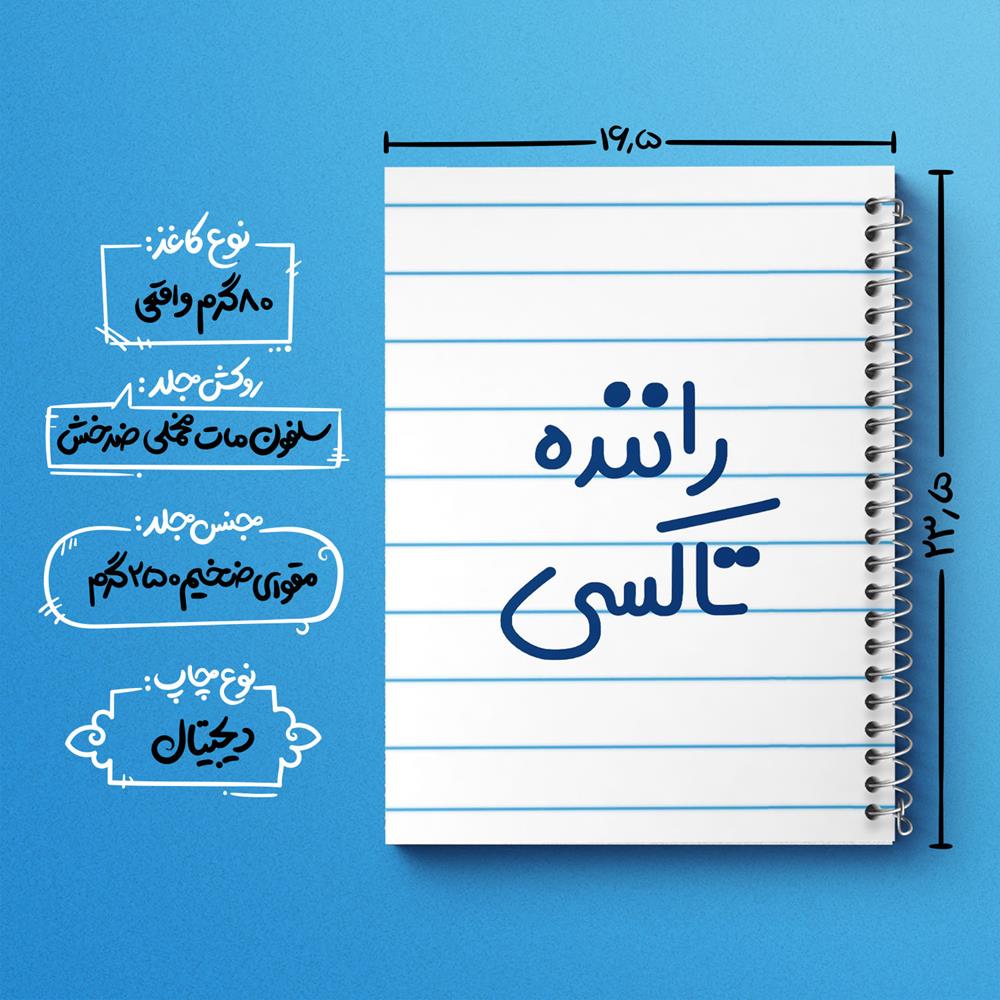 ۱۶٫۵
۲۳٫۵
نوع کاغذ:
۸۰گرم واقعی
روکش جلد:
سلفون مات مخملی ضدخش
جنس جلد:
مقوای ضخیم ۲۵۰گرم
نوع چاپ:
دیجیتال
راننده
تاکسی